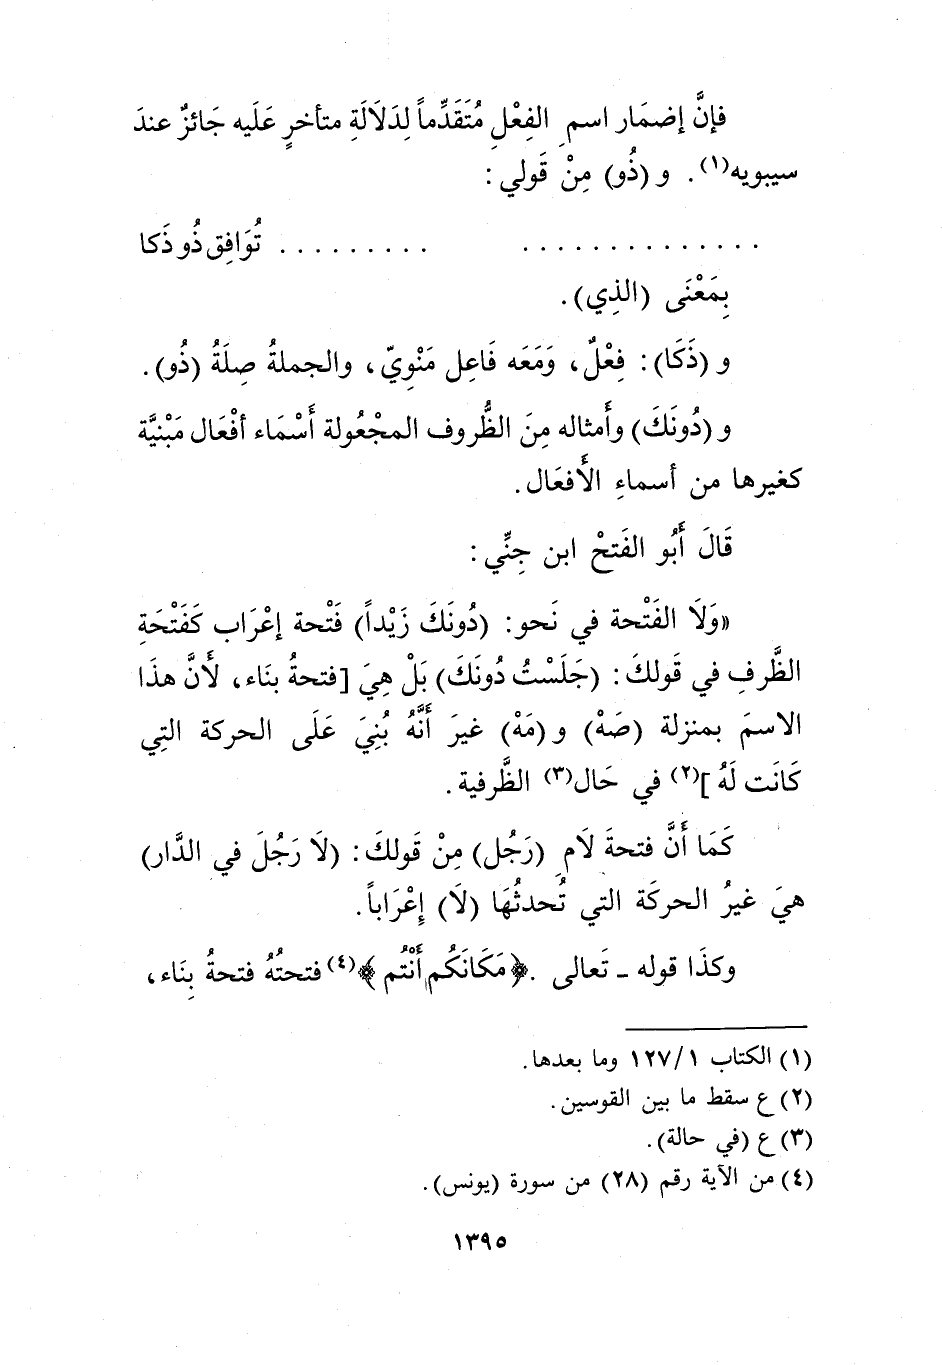 فإنَّ إضمَار اسمِ الفِعْلِ مُتَقَدِّماً لِدَلَالَةِ متأخرٍ عَلَيه جَائزٌ عندَ
سيبويه(١). و (ذُو) مِنْ قَولي:
. . . . . . . . . . . . . . . . . . . . . . . تُوَافِق ذُو ذَكا
بِمَعْنَى (الذِي).
و (ذَكَا): فِعْلٌ، وَمَعَه فَاعِل مَنْوِيّ، والجملةُ صِلَةُ (ذُو).
و (دُونَكَ) وأَمثاله مِنَ الظُّروف المجْعُولة أَسْمَاء أفْعَال مَبْنيَّة
كغيرها من أسماءِ الأَفعَال.
قَالَ أَبُو الفَتحْ ابن جِنِّي:
«وَلَا الفَتْحة في نَحو: (دُونَكَ زَيْداً) فَتْحة إعْرَاب كَفَتْحَةِ
الظَّرفِ في قَولكَ: (جَلَسْتُ دُونَكَ) بَلْ هِيَ [فتحةُ بنَاء، لأَنَّ هذَا
الاسمَ بمنزلة (صَهْ) و (مَهْ) غيرَ أَنَّهُ بُنِيَ عَلَى الحركة التِي
كَانَت لَهُ](٢) في حَال(٣) الظَّرفية.
كَمَا أَنَّ فتحةَ لَامِ (رَجُل) مِنْ قَولكَ: (لَا رَجُلَ في الدَّار)
هيَ غيرُ الحركَة التي تُحدثُهَا (لَا) إِعْرَاباً.
وكذَا قوله ـ تَعالى . ﴿مَكَانَكُم أَنْتُم﴾(٤) فتحتُهُ فتحةُ بِنَاء،
(١) الكتاب ١٢٧/١ وما بعدها.
(٢) ع سقط ما بين القوسين.
(٣) ع (في حالة).
(٤) من الآية رقم (٢٨) من سورة (يونس).
١٣٩٥